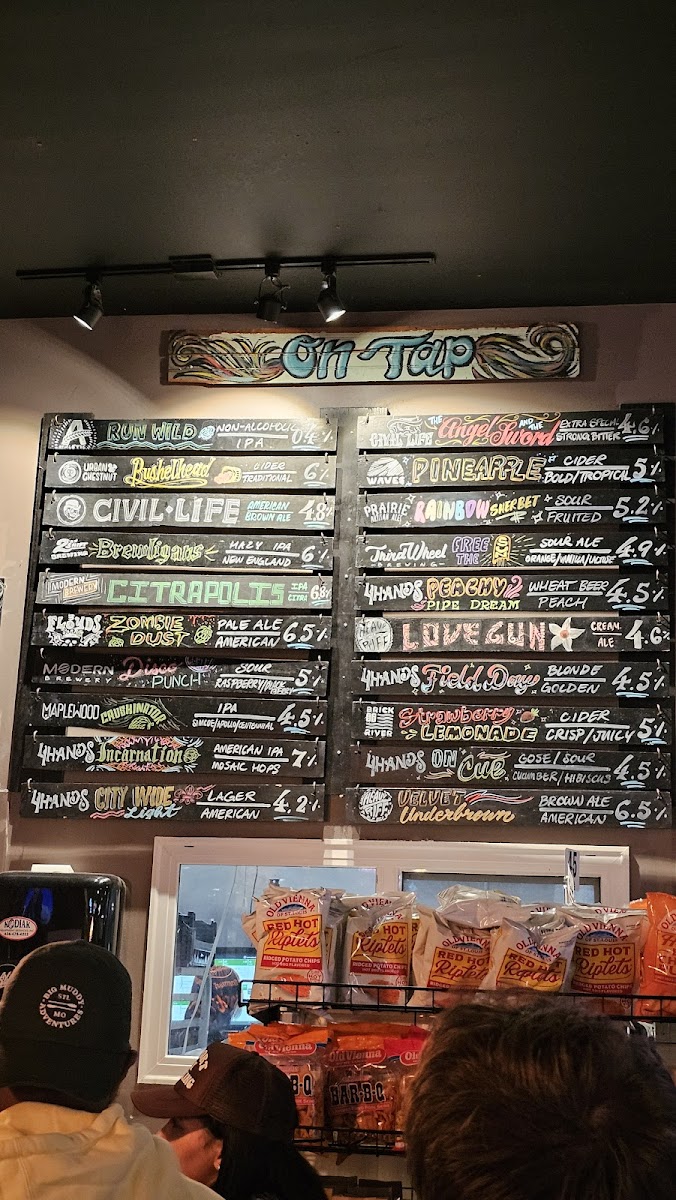 On-Tap
RUN WILD NON-ALCOHOLIC IPA 0.4%
URBAN CHESTNUT Bushelhead CIDER TRADITIONAL 6%
CIVIL·LIFE AMERICAN BROWN ALE 4.8%
2nd SHIFT BREWING Brewligans HAZY IPA NEW ENGLAND 6%
MODERN BREWERY CITRAPOLIS IPA CITRA
FLOYDS ZOMBIE DUST PALE ALE AMERICAN 6.5%
MODERN BREWERY Disco PUNCH SOUR 5%
MAPLEWOOD IPA 4.5%
4HANDS Incarnation AMERICAN IPA MOSAIC HOPS 7%
4HANDS CITY WIDE Light LAGER AMERICAN 4.2%
CIVIL LIFE THE Angel AND THE Sword EXTRA SPECIAL STRONG BITTER 4.6%
WAVES PINEAPPLE CIDER BOLD/TROPICAL 5%
PRAIRIE ARTISAN ALES RAINBOW SHERBET SOUR FRUITED 5.2%
Third Wheel BREWING FREE THE SOUR ALE 4.9%
4HANDS PEACHY PIPE DREAM WHEAT BEER PEACH 4.5%
LOVE GUN CREAM ALE 4.6%
4HANDS Field Day BLONDE GOLDEN 4.5%
BRICK RIVER Strawberry LEMONADE CIDER CRISP/JUICY 5%
4HANDS ON Cue GOSE/SOUR CUCUMBER/HIBISCUS 4.5%
HEAVY RIFF VELVET Underbrown BROWN ALE AMERICAN 6.5%
KODIAK
OLD VIENNA OF ST. LOUIS RED HOT Riplets RIDGED POTATO CHIPS
RED HOT Riplets RIDGED POTATO CHIPS
OLD VIENNA RED HOT Riplets
OLD VIENNA RED HOT Riplets
OLD VIENNA RED HOT Riplets RIDGED POTATO CHIPS
BIG MUDDY ADVENTURES STL MO
Old Vienna
Old Vienna BAR-B-Q